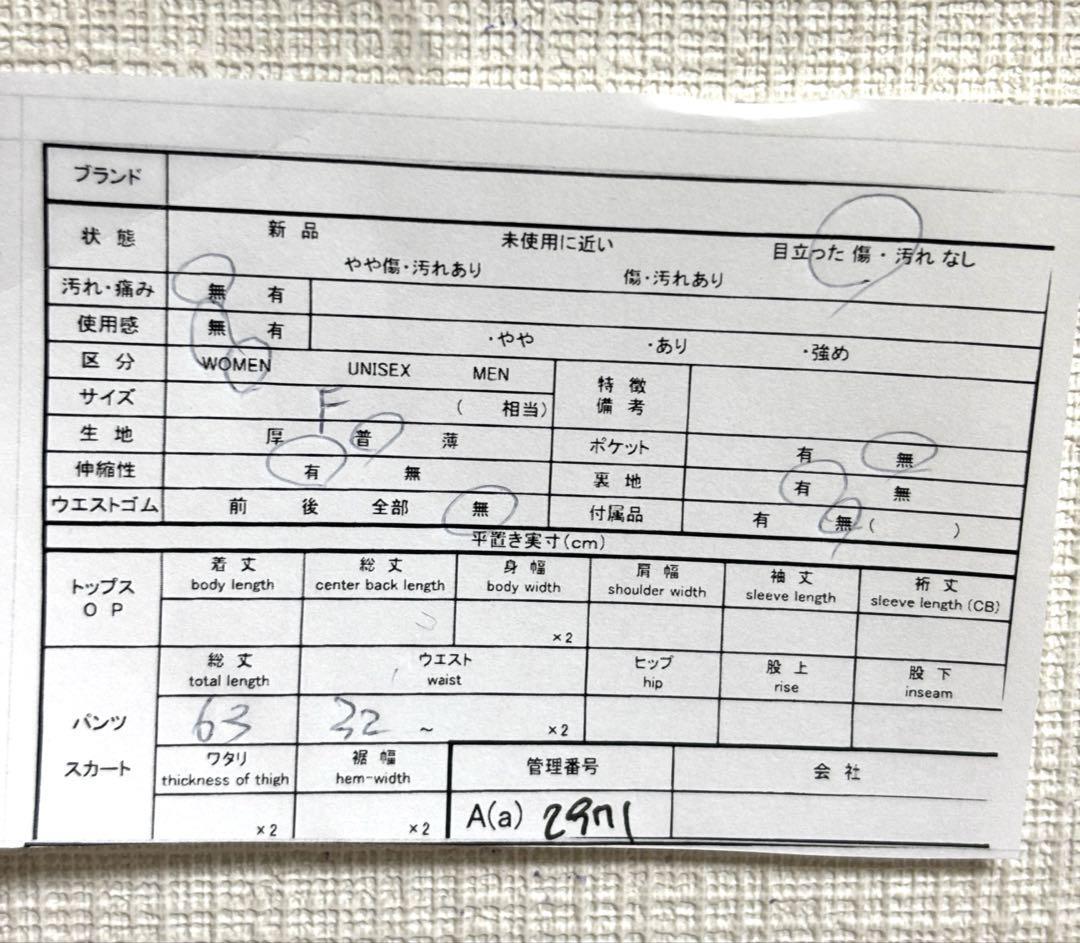 ブランド
状態 新品 未使用に近い 目立った 傷・汚れ なし
やや傷・汚れあり 傷・汚れあり
汚れ・痛み 無 有
使用感 無 有 ・やや ・あり ・強め
区分 WOMEN UNISEX MEN 特徴
備考
サイズ F ( 相当)
生地 厚 普 薄 ポケット 有 無
伸縮性 有 無 裏地 有 無
ウエストゴム 前 後 全部 無 付属品 有 無 ( )
平置き実寸(cm)
トップス
OP
着丈 総丈 身幅 肩幅 袖丈 裄丈
body length center back length body width shoulder width sleeve length sleeve length (CB)
×2
総丈 ウエスト ヒップ 股上 股下
total length waist hip rise inseam
パンツ 63 32 ~ ×2
スカート
ワタリ 裾幅 管理番号 会社
thickness of thigh hem-width
×2 ×2 A(a) 2971